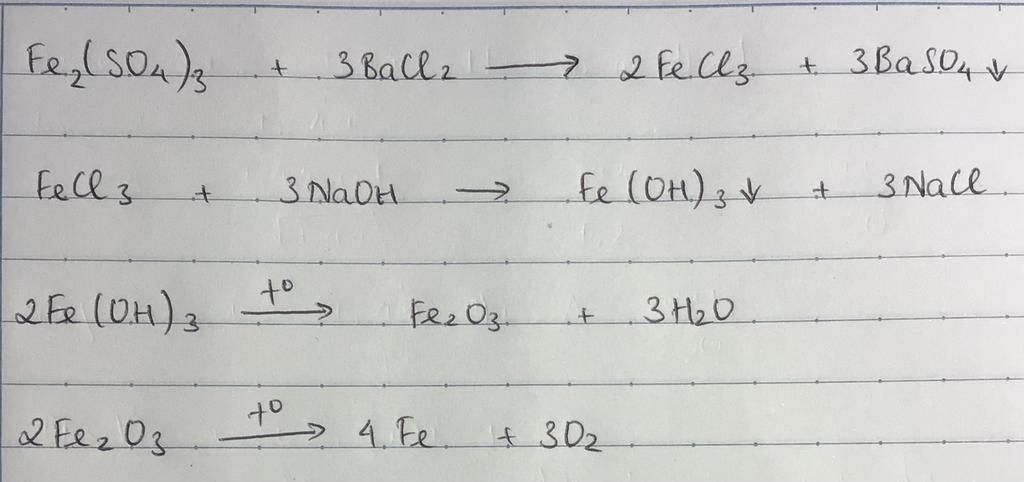 Fe₂(SO₄)₃ + 3BaCl₂ → 2FeCl₃ + 3BaSO₄↓
FeCl₃ + 3NaOH → Fe(OH)₃↓ + 3NaCl
2Fe(OH)₃ t⁰→ Fe₂O₃ + 3H₂O
2Fe₂O₃ t⁰→ 4Fe + 3O₂